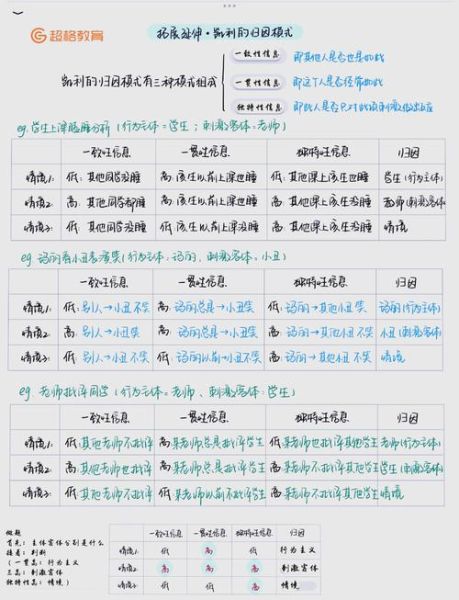 超格教育
拓展延伸·凯利的归因模式
凯利的归因模式有三种模式组成
一致性信息 即其他人是否也是如此
一贯性信息 即这个人是否经常如此
独特性信息 即此人是否只对此项刺激做出反应
eg. 学生上课瞌睡分析（行为主体=学生；刺激客体:老师）
一致性信息 一贯性信息 独特性信息 归因
情境1. 低: 其他同学没睡 高: 该生以前上课也睡 低: 其他课上该生也睡 学生(行为主体)
情境2. 高: 其他同学都睡 高: 该生以前上课也睡 高: 其他课上该生没睡 老师(刺激客体)
情境3. 低: 其他同学没睡 低: 该生以前上课没睡 高: 其他课上该生没睡 情境
eg. 玛丽看小丑表演笑(行为主体:玛丽、刺激客体:小丑)
一致性信息 一贯性信息 独特性信息 归因
情境1. 低: 别人→小丑不笑 高: 玛丽总是→小丑笑 低: 玛丽→其他小丑笑 玛丽(行为主体)
情境2. 高: 别人→小丑笑 高: 玛丽总是→小丑笑 高: 玛丽→其他小丑不笑 小丑(刺激客体)
情境3. 低: 别人→小丑不笑 低: 玛丽以前→小丑不笑 高: 玛丽→其他小丑不笑 情境
eg. 老师批评同学(行为主体=老师、刺激客体:学生)
一致性信息 一贯性信息 独特性信息 归因
情境1. 低: 其他老师不批评 高: 某老师总是批评学生 低: 某老师也批评其他学生 老师(行为主体)
情境2. 高: 其他老师也批评 高: 某老师总是批评学生 高: 某老师不批评其他学生 学生(刺激客体)
情境3. 低: 其他老师不批评 低: 某老师以前不批评学生 高: 某老师不批评其他学生 情境
做题
首先: 主体客体分别是什么
接着: 判断
(一贯高: 行为主义
三高: 刺激客体
独特性高: 情境)
一致性信息 一贯性信息 独特性信息 归因
情境1. 低 高 低 行为主义
情境2. 高 高 高 刺激客体
情境3. 低 低 高 情境